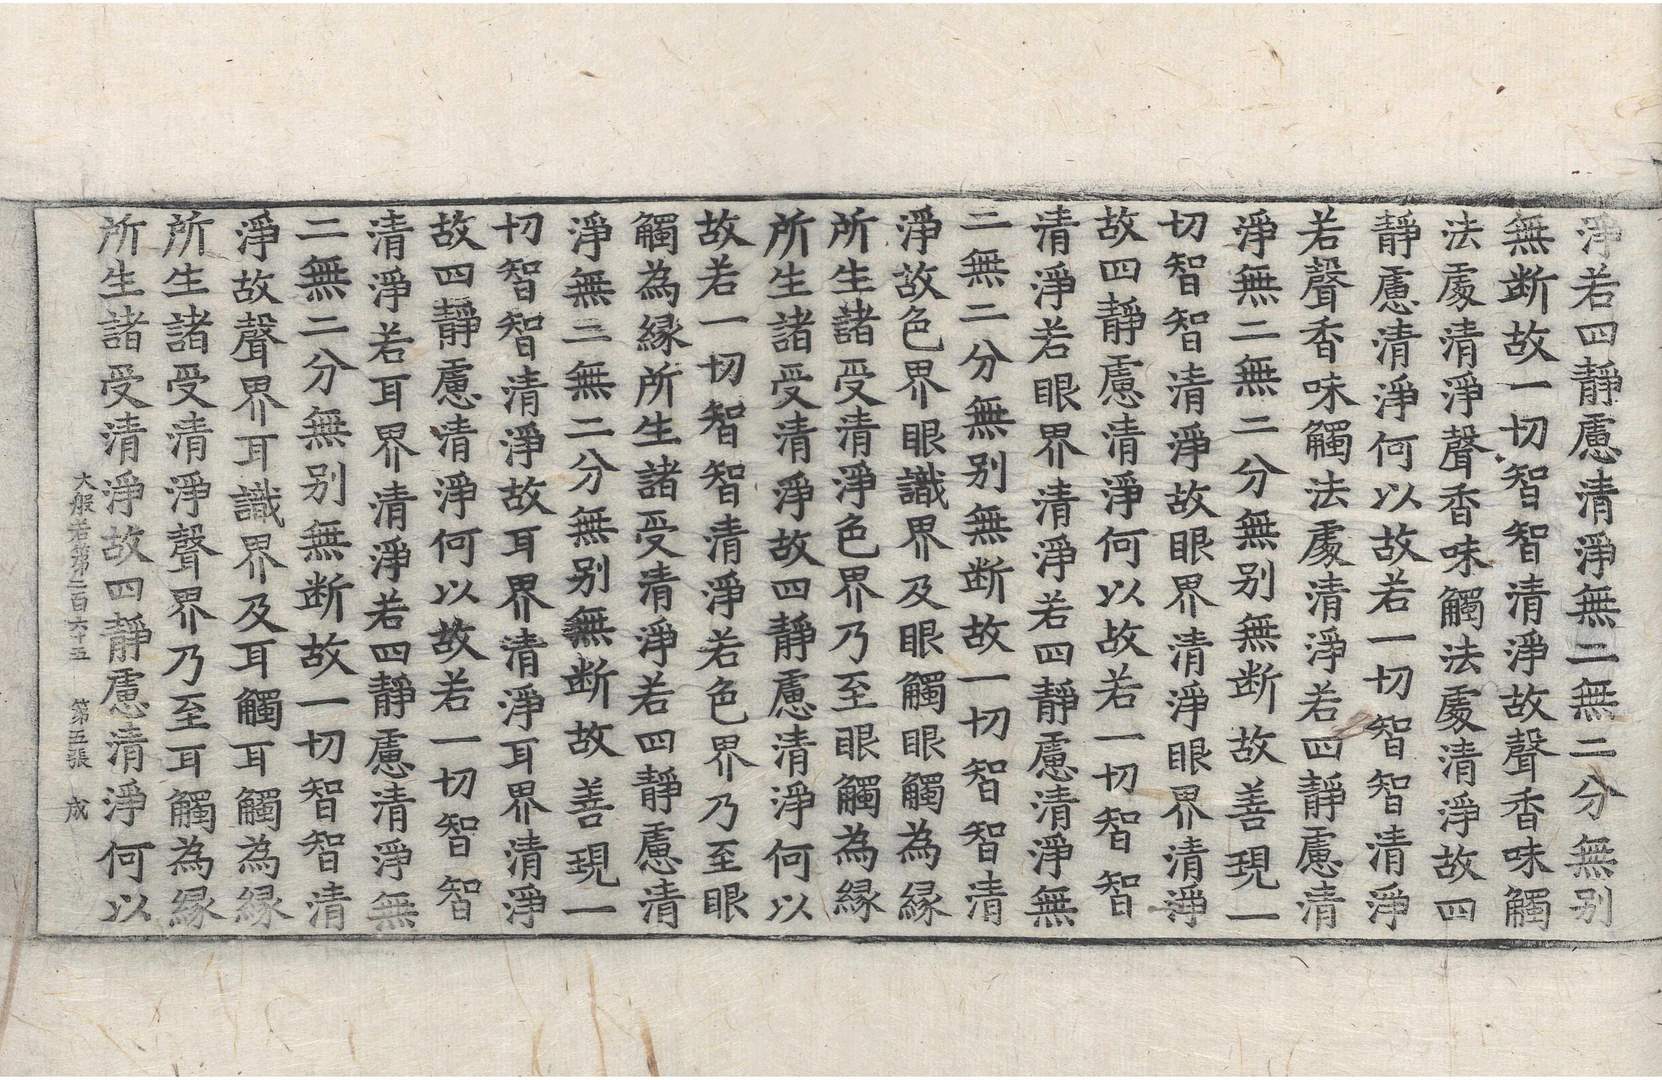 淨若四靜慮清淨無二無二分無别
無断故一切智智清淨故聲香味觸
法處清淨聲香味觸法處清淨故四
靜慮清淨何以故若一切智智清淨
若聲香味觸法處清淨若四靜慮清
淨無二無二分無别無断故善現一
切智智清淨故眼界清淨眼界清淨
故四靜慮清淨何以故若一切智智
清淨若眼界清淨若四靜慮清淨無
二無二分無别無断故一切智智清
淨故色界眼識界及眼觸眼觸為縁
所生諸受清淨色界乃至眼觸為縁
所生諸受清淨故四靜慮清淨何以
故若一切智智清淨若色界乃至眼
觸為縁所生諸受清淨若四靜慮清
淨無二無二分無别無断故善現一
切智智清淨故耳界清淨耳界清淨
故四靜慮清淨何以故若一切智智
清淨若耳界清淨若四靜慮清淨無
二無二分無别無断故一切智智清
淨故聲界耳識界及耳觸耳觸為縁
所生諸受清淨聲界乃至耳觸為縁
所生諸受清淨故四靜慮清淨何以
大般若第二百六十五 第五張 成